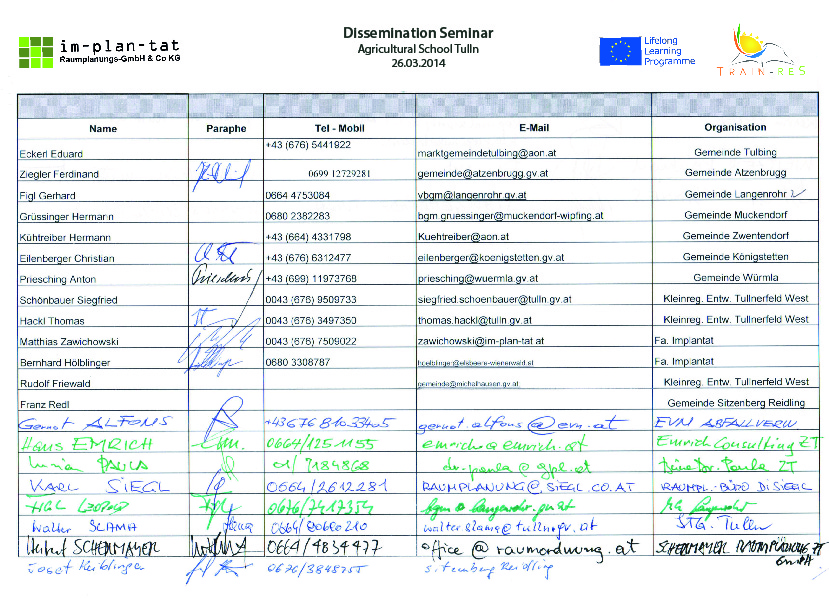 im-plan-tat
Raumplanungs-GmbH & Co KG
Dissemination Seminar
Agricultural School Tulln
26.03.2014
Lifelong
Learning
Programme
TRAIN-RES
Name Paraphe Tel - Mobil E-Mail Organisation
Eckerl Eduard +43 (676) 5441922 marktgemeindetulbing@aon.at Gemeinde Tulbing
Ziegler Ferdinand 0699 12729281 gemeinde@atzenbrugg.gv.at Gemeinde Atzenbrugg
Figl Gerhard 0664 4753084 vbgm@langenrohr.gv.at Gemeinde Langenrohr
Grüssinger Hermann 0680 2382283 bgm.gruessinger@muckendorf-wipfing.at Gemeinde Muckendorf
Kühtreiber Hermann +43 (664) 4331798 Kuehtreiber@aon.at Gemeinde Zwentendorf
Eilenberger Christian +43 (676) 6312477 eilenberger@koenigstetten.gv.at Gemeinde Königstetten
Priesching Anton +43 (699) 11973768 priesching@wuermla.gv.at Gemeinde Würmla
Schönbauer Siegfried 0043 (676) 9509733 siegfried.schoenbauer@tulln.gv.at Kleinreg. Entw. Tullnerfeld West
Hackl Thomas 0043 (676) 3497350 thomas.hackl@tulln.gv.at Kleinreg. Entw. Tullnerfeld West
Matthias Zawichowski 0043 (676) 7509022 zawichowski@im-plan-tat.at Fa. Implantat
Bernhard Hölblinger 0680 3308787 hoelblinger@elsbeere-wienerwald.at Fa. Implantat
Rudolf Friewald gemeinde@michelhausen.gv.at Kleinreg. Entw. Tullnerfeld West
Franz Redl Gemeinde Sitzenberg Reidling
Gernot ALFONS +43676 810 33405 gernot.alfons@evn.at EVN ABFALLVERW
Hans EMRICH 0664/1251155 emrich@emrich.at Emrich Consulting ZT
PAULA 01/7184868 dr.paula@gpl.at Paula ZT
KARL SIEGL 0664/2612281 RAUMPLANUNG@SIEGL.CO.AT RAUMPL.-BÜRO DI SIEGL
HGL Leopold 0676/7417354 bgm@langenrohr.gv.at
Walter SLAMA 0664/ walter.slama@tulln.gv.at STG. Tulln
SCHEDLMAYER 0664/4834477 office@raumordnung.at SCHEDLMAYER RAUMPLANUNG ZT GmbH
Josef Keiblinger 0676/3848255 Sitzenberg Reidling